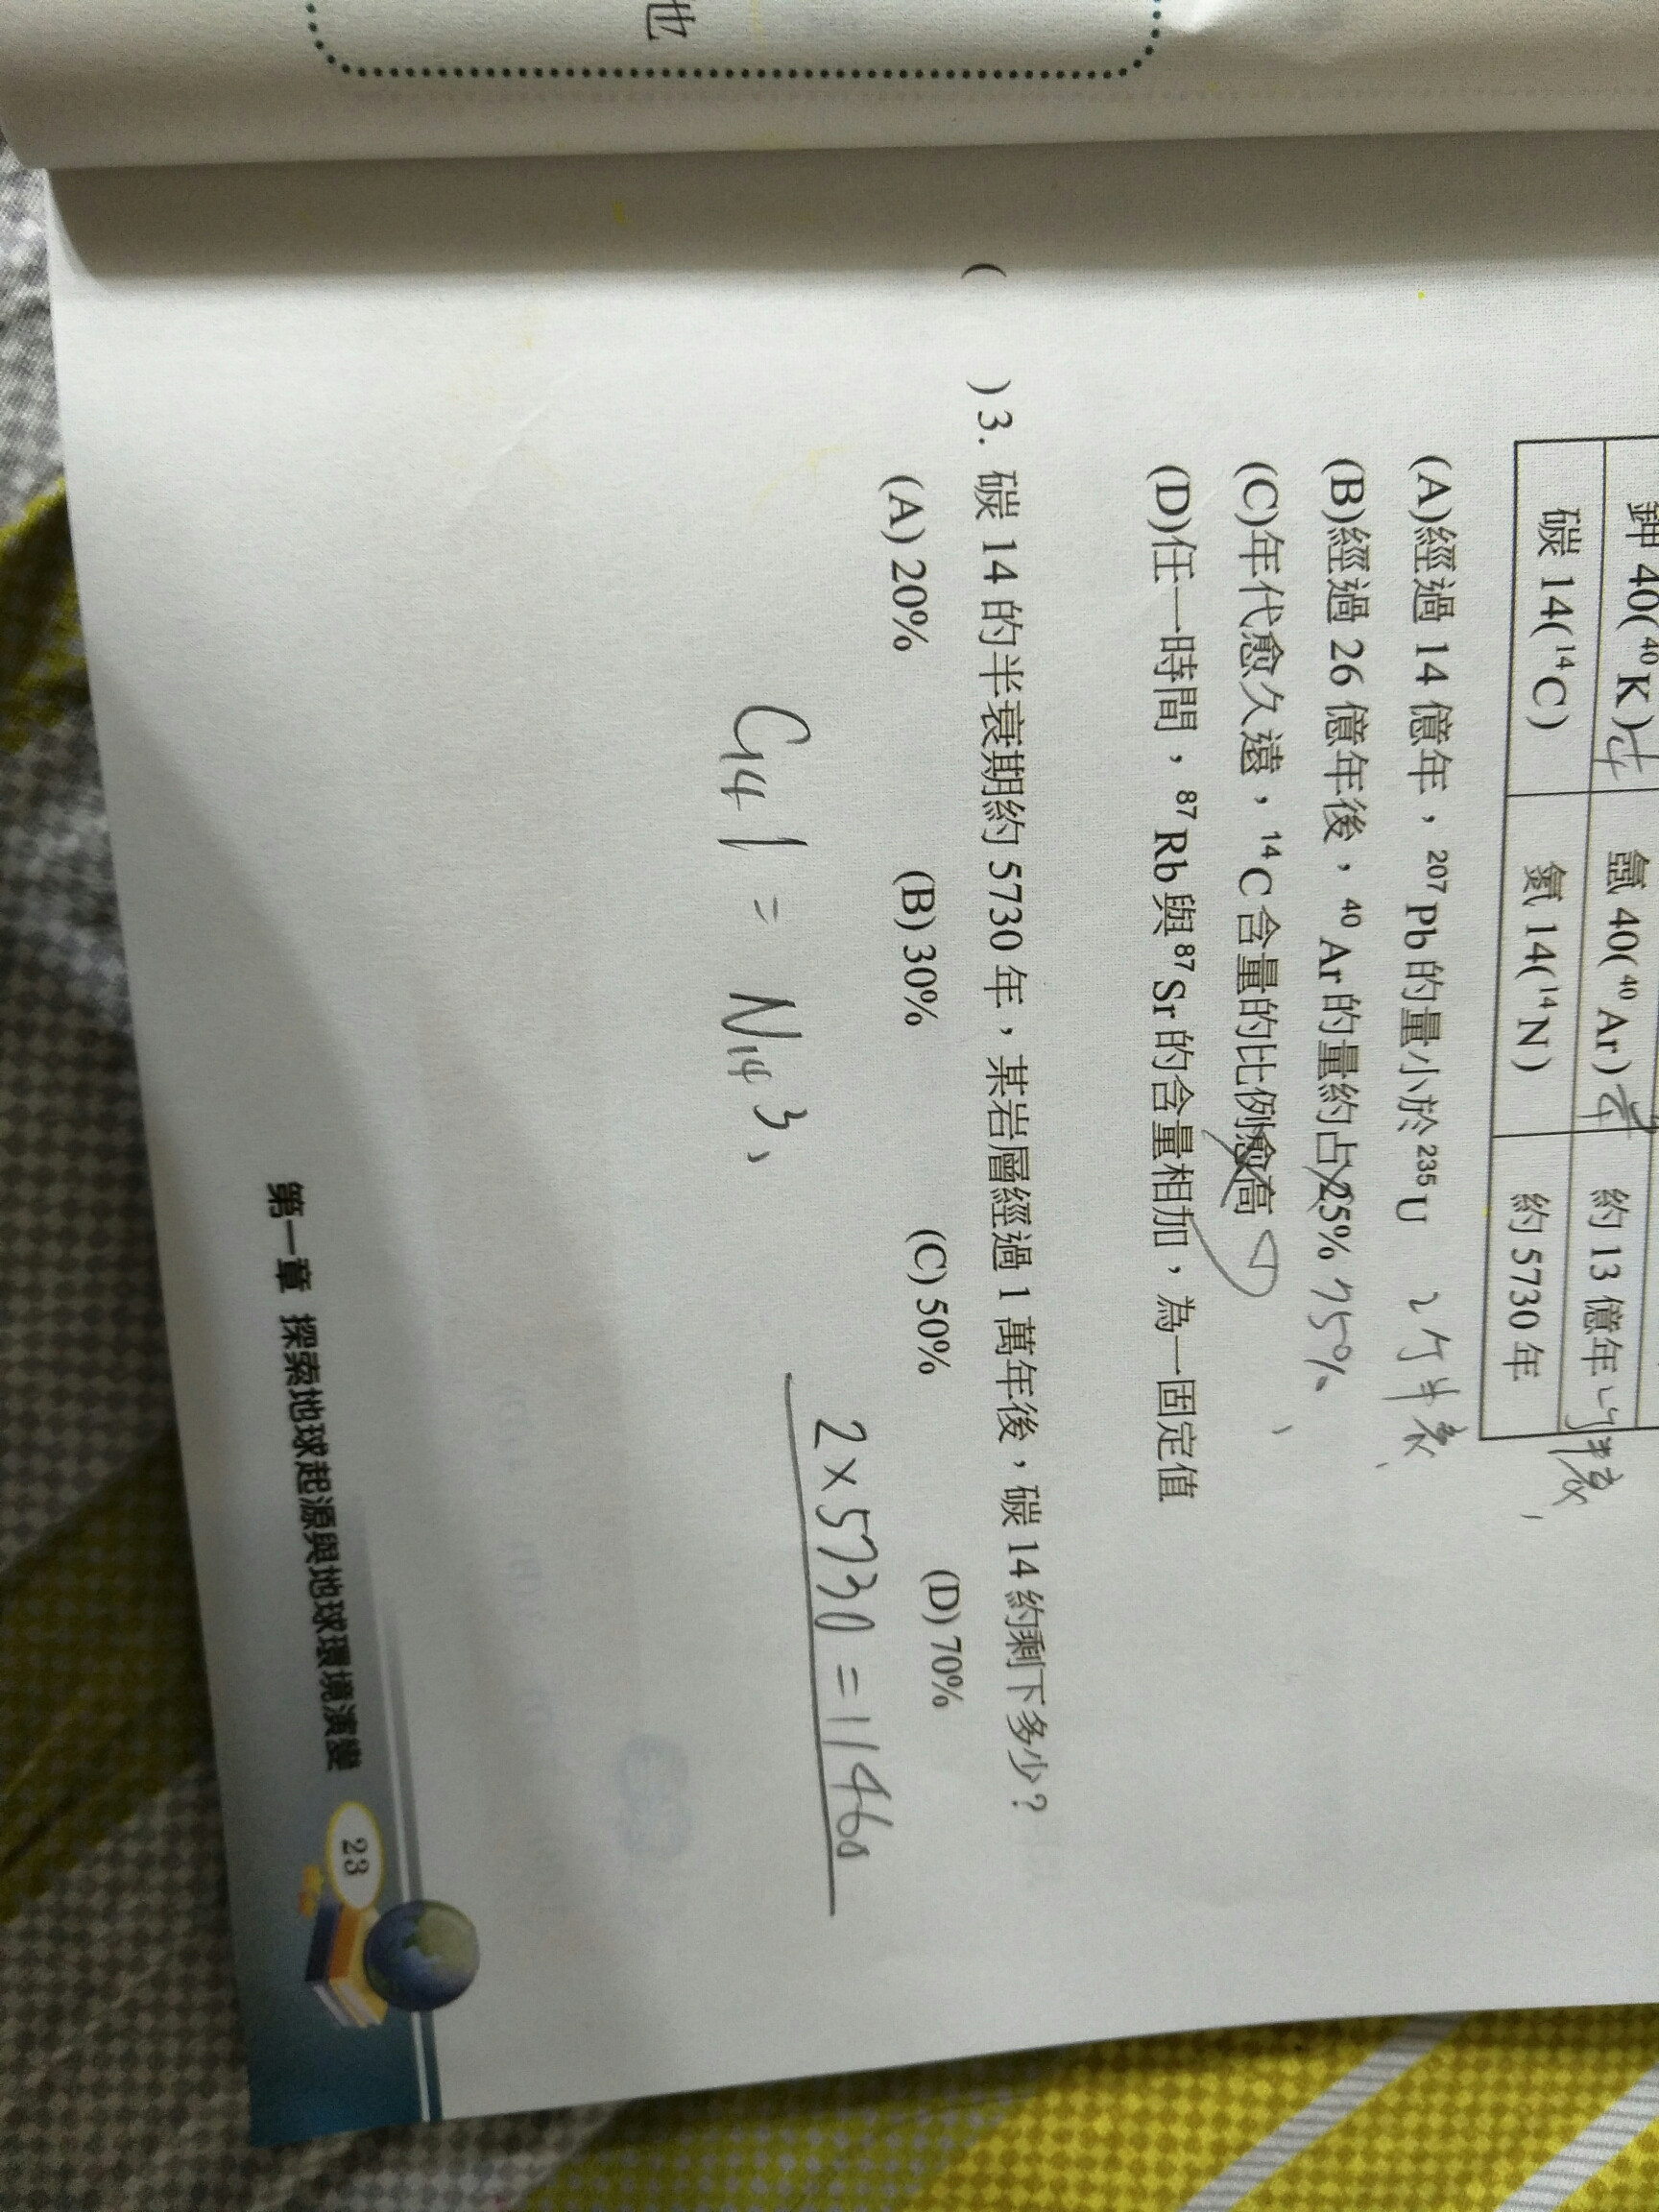 地
鉀 40(⁴⁰K) 氬 40(⁴⁰Ar) 約 13 億年
碳 14(¹⁴C) 氮 14(¹⁴N) 約 5730 年
(A)經過 14 億年，²⁰⁷Pb 的量小於 ²³⁵U 2个半衰
(B)經過 26 億年後，⁴⁰Ar 的量約占 25% 75%
(C)年代愈久遠，¹⁴C 含量的比例愈高
(D)任一時間，⁸⁷Rb 與 ⁸⁷Sr 的含量相加，為一固定值
( )3. 碳 14 的半衰期約 5730 年，某岩層經過 1 萬年後，碳 14 約剩下多少？
(A) 20% (B) 30% (C) 50% (D) 70%
2×5730=11460
C14 1 = N14 3
第一章 探索地球起源與地球環境演變 23